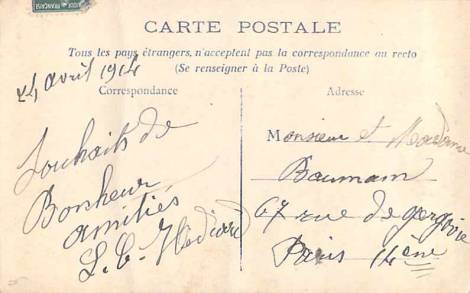 CARTE POSTALE
Tous les pays étrangers, n'acceptent pas la correspondance au recto
(Se renseigner à la Poste)
24 avril 1914
Correspondance
Souhaits de
Bonheur
amitiés
L. C.
Adresse
Monsieur et Madame
Baumann
67 rue de gergovie
Paris 14ème